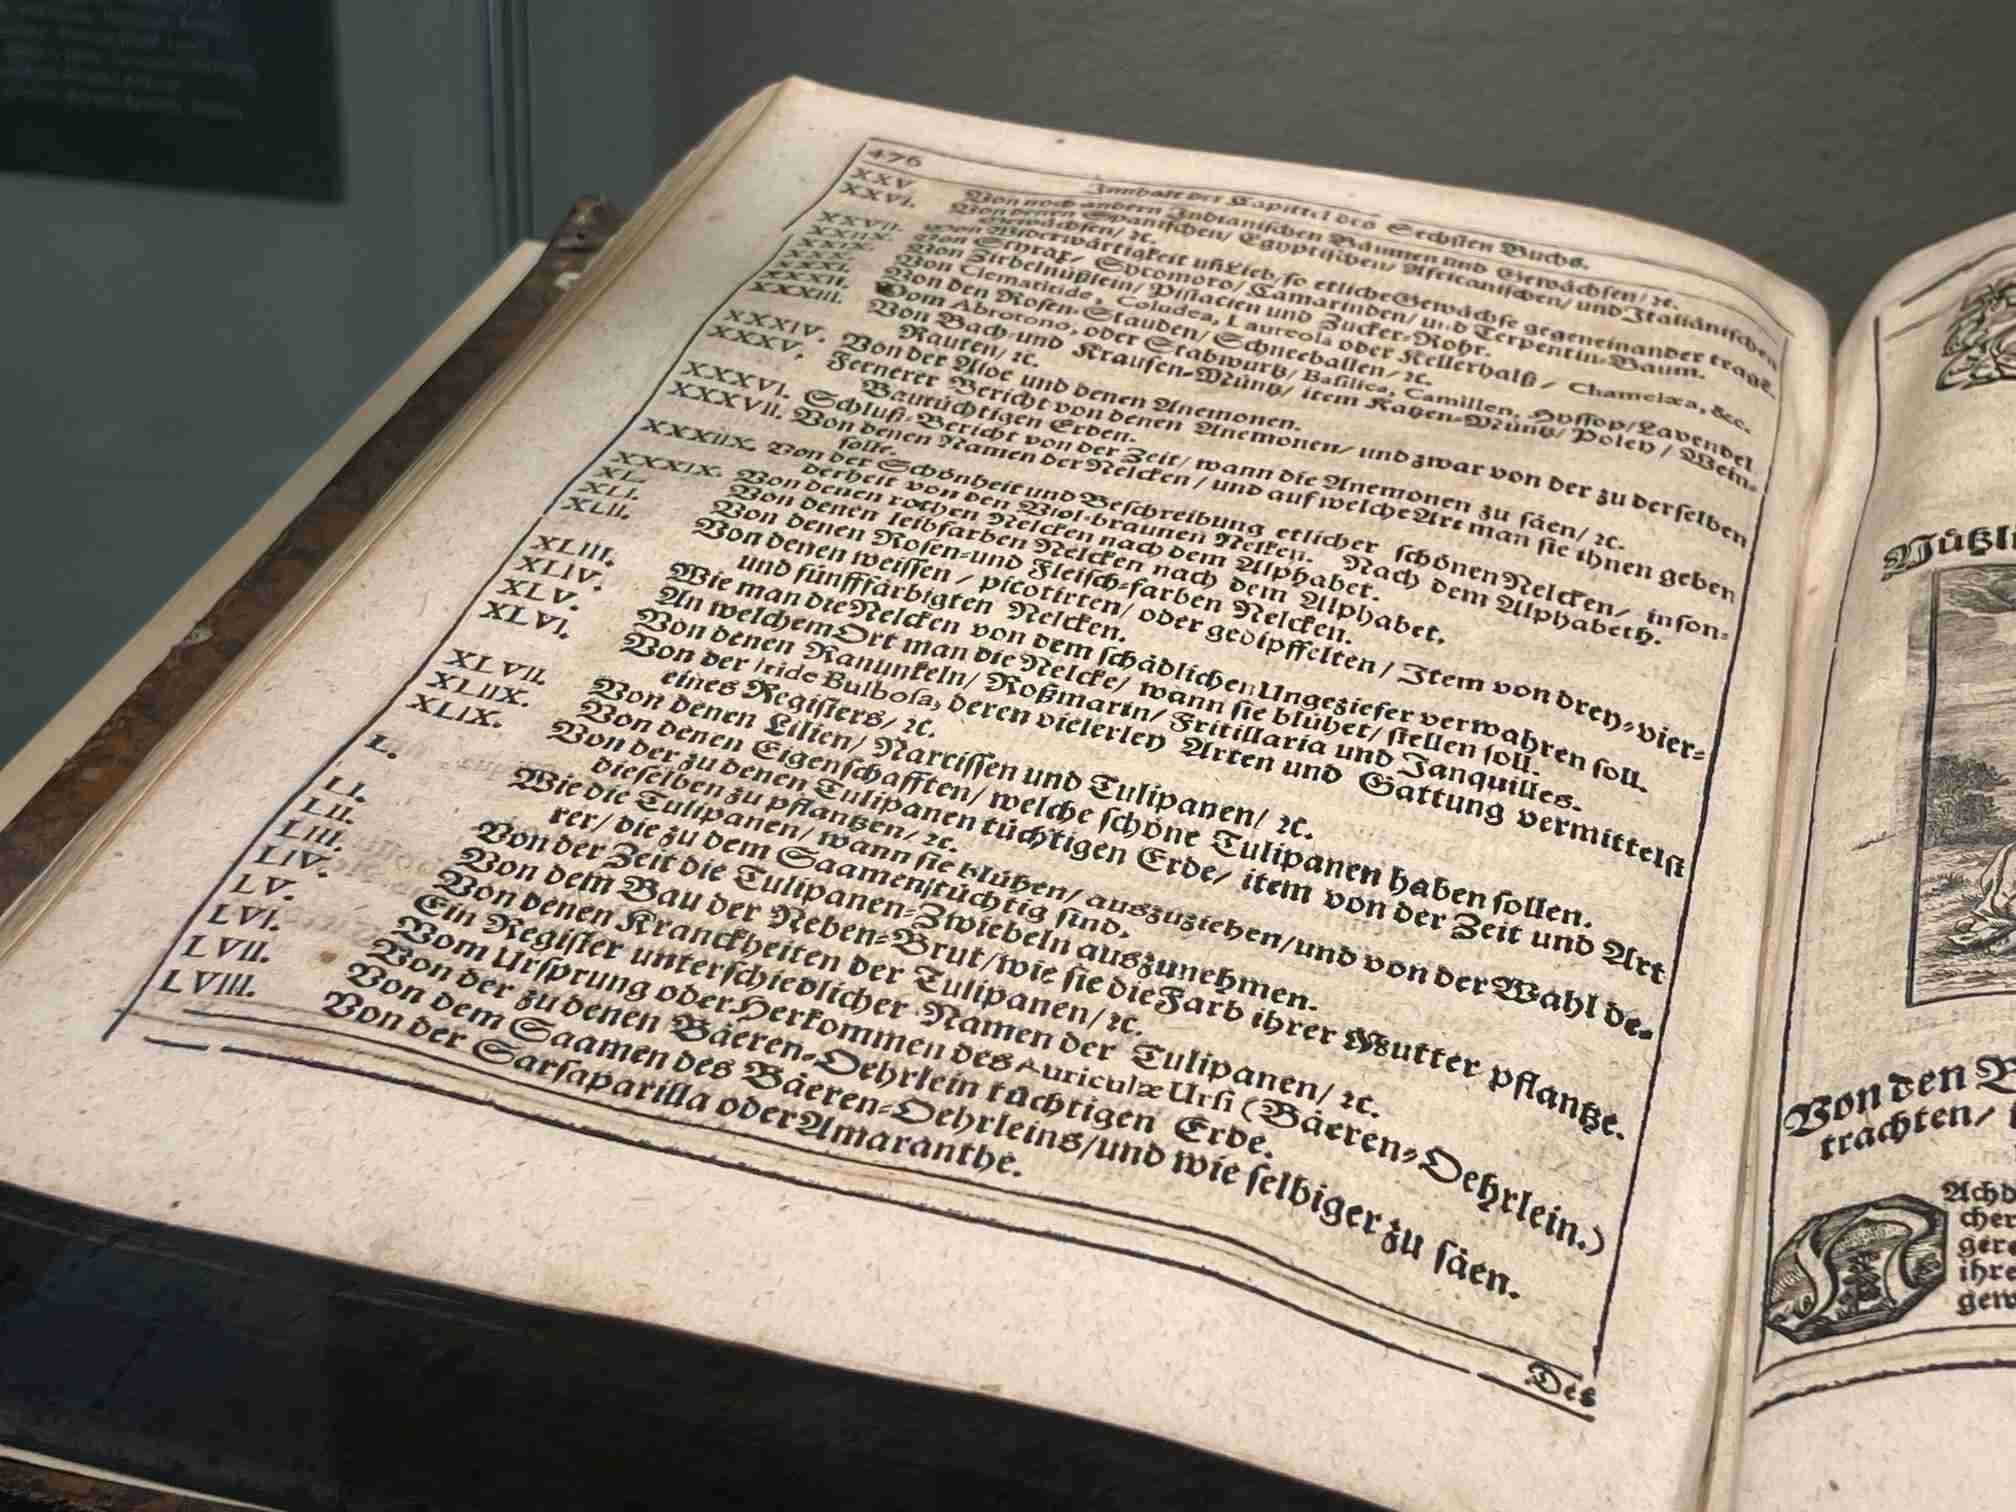 476
Innhalt der Capittel des Sechsten Buchs.
XXV. Von noch andern Indianischen Bäumen und Gewächsen/ ꝛc.
XXVI. Von denen Spanischen/ Egyptischen/ Africanischen/ und Italiänischen
Gewächsen/ ꝛc.
XXVII. Von Widerwärtigkeit uñ Lieb/ so etliche Gewächse gegeneinander tragē.
XXIIX. Von Styrax/ Sycomoro/ Tamarinden/ und Terpentin-Baum.
XXIX. Von Zirbelnüßlein/ Pistacien und Zucker-Rohr.
XXX. Von Clematitide, Coludea, Laureola oder Kellerhalß/ Chamelæa, &c.
XXXI. Von den Rosen-Stauden/ Schneeballen/ ꝛc.
XXXII. Vom Abrotono, oder Stabwurtz/ Basilica, Camillen, Hyssop/ Lavendel
XXXIII. Von Bach- und Krausen-Müntz/ item Katzen-Müntz/ Poley/ Wein-
Rauten/ ꝛc.
XXXIV. Von der Aloe und denen Anemonen.
XXXV. Fernerer Bericht von denen Anemonen/ und zwar von der zu derselben
Bautüchtigen Erden.
XXXVI. Schluß-Bericht von der Zeit/ wann die Anemonen zu säen/ ꝛc.
XXXVII. Von denen Namen der Nelcken/ und auf welche Art man sie ihnen geben
solle.
XXXIIX. Von der Schönheit und Beschreibung etlicher schönen Nelcken/ inson-
derheit von den Viol-braunen Nelken. Nach dem Alphabeth.
XXXIX. Von denen rothen Nelcken nach dem Alphabet.
XL. Von denen leibfarben Nelcken nach dem Alphabet.
XLI. Von denen Rosen- und Fleisch-farben Nelcken.
XLII. Von denen weissen/ picotirten/ oder gedipffelten/ Item von drey-vier-
und fünfffärbigten Nelcken.
XLIII. Wie man die Nelcken von dem schädlichen Ungeziefer verwahren soll.
XLIV. An welchem Ort man die Nelcke/ wann sie blühet/ stellen soll.
XLV. Von denen Ranunkeln/ Roßmarin/ Fritillaria und Janquilles.
XLVI. Von der Iride Bulbosa, deren vielerley Arten und Gattung vermittelst
eines Registers/ ꝛc.
XLVII. Von denen Lilien/ Narcissen und Tulipanen/ ꝛc.
XLIIX. Von denen Eigenschafften/ welche schöne Tulipanen haben sollen.
XLIX. Von der zu denen Tulipanen tüchtigen Erde/ item von der Zeit und Art
dieselben zu pflantzen/ ꝛc.
L. Wie die Tulipanen/ wann sie blühen/ auszuziehen/ und von der Wahl de-
rer/ die zu dem Saamen tüchtig sind.
LI. Von der Zeit die Tulipanen-Zwiebeln auszunehmen.
LII. Von dem Bau der Neben-Brut/ wie sie die Farb ihrer Mutter pflantze.
LIII. Von denen Kranckheiten der Tulipanen/ ꝛc.
LIV. Ein Register unterschiedlicher Namen der Tulipanen/ ꝛc.
LV. Vom Ursprung oder Herkommen des Auriculæ Ursi (Bäeren-Oehrlein.)
LVI. Von der zu denen Bäeren-Oehrlein tüchtigen Erde.
LVII. Von dem Saamen des Bäeren-Oehrleins/ und wie selbiger zu säen.
LVIII. Von der Sarsaparilla oder Amaranthe.
Des
Von den
trachten/
cher
ihre